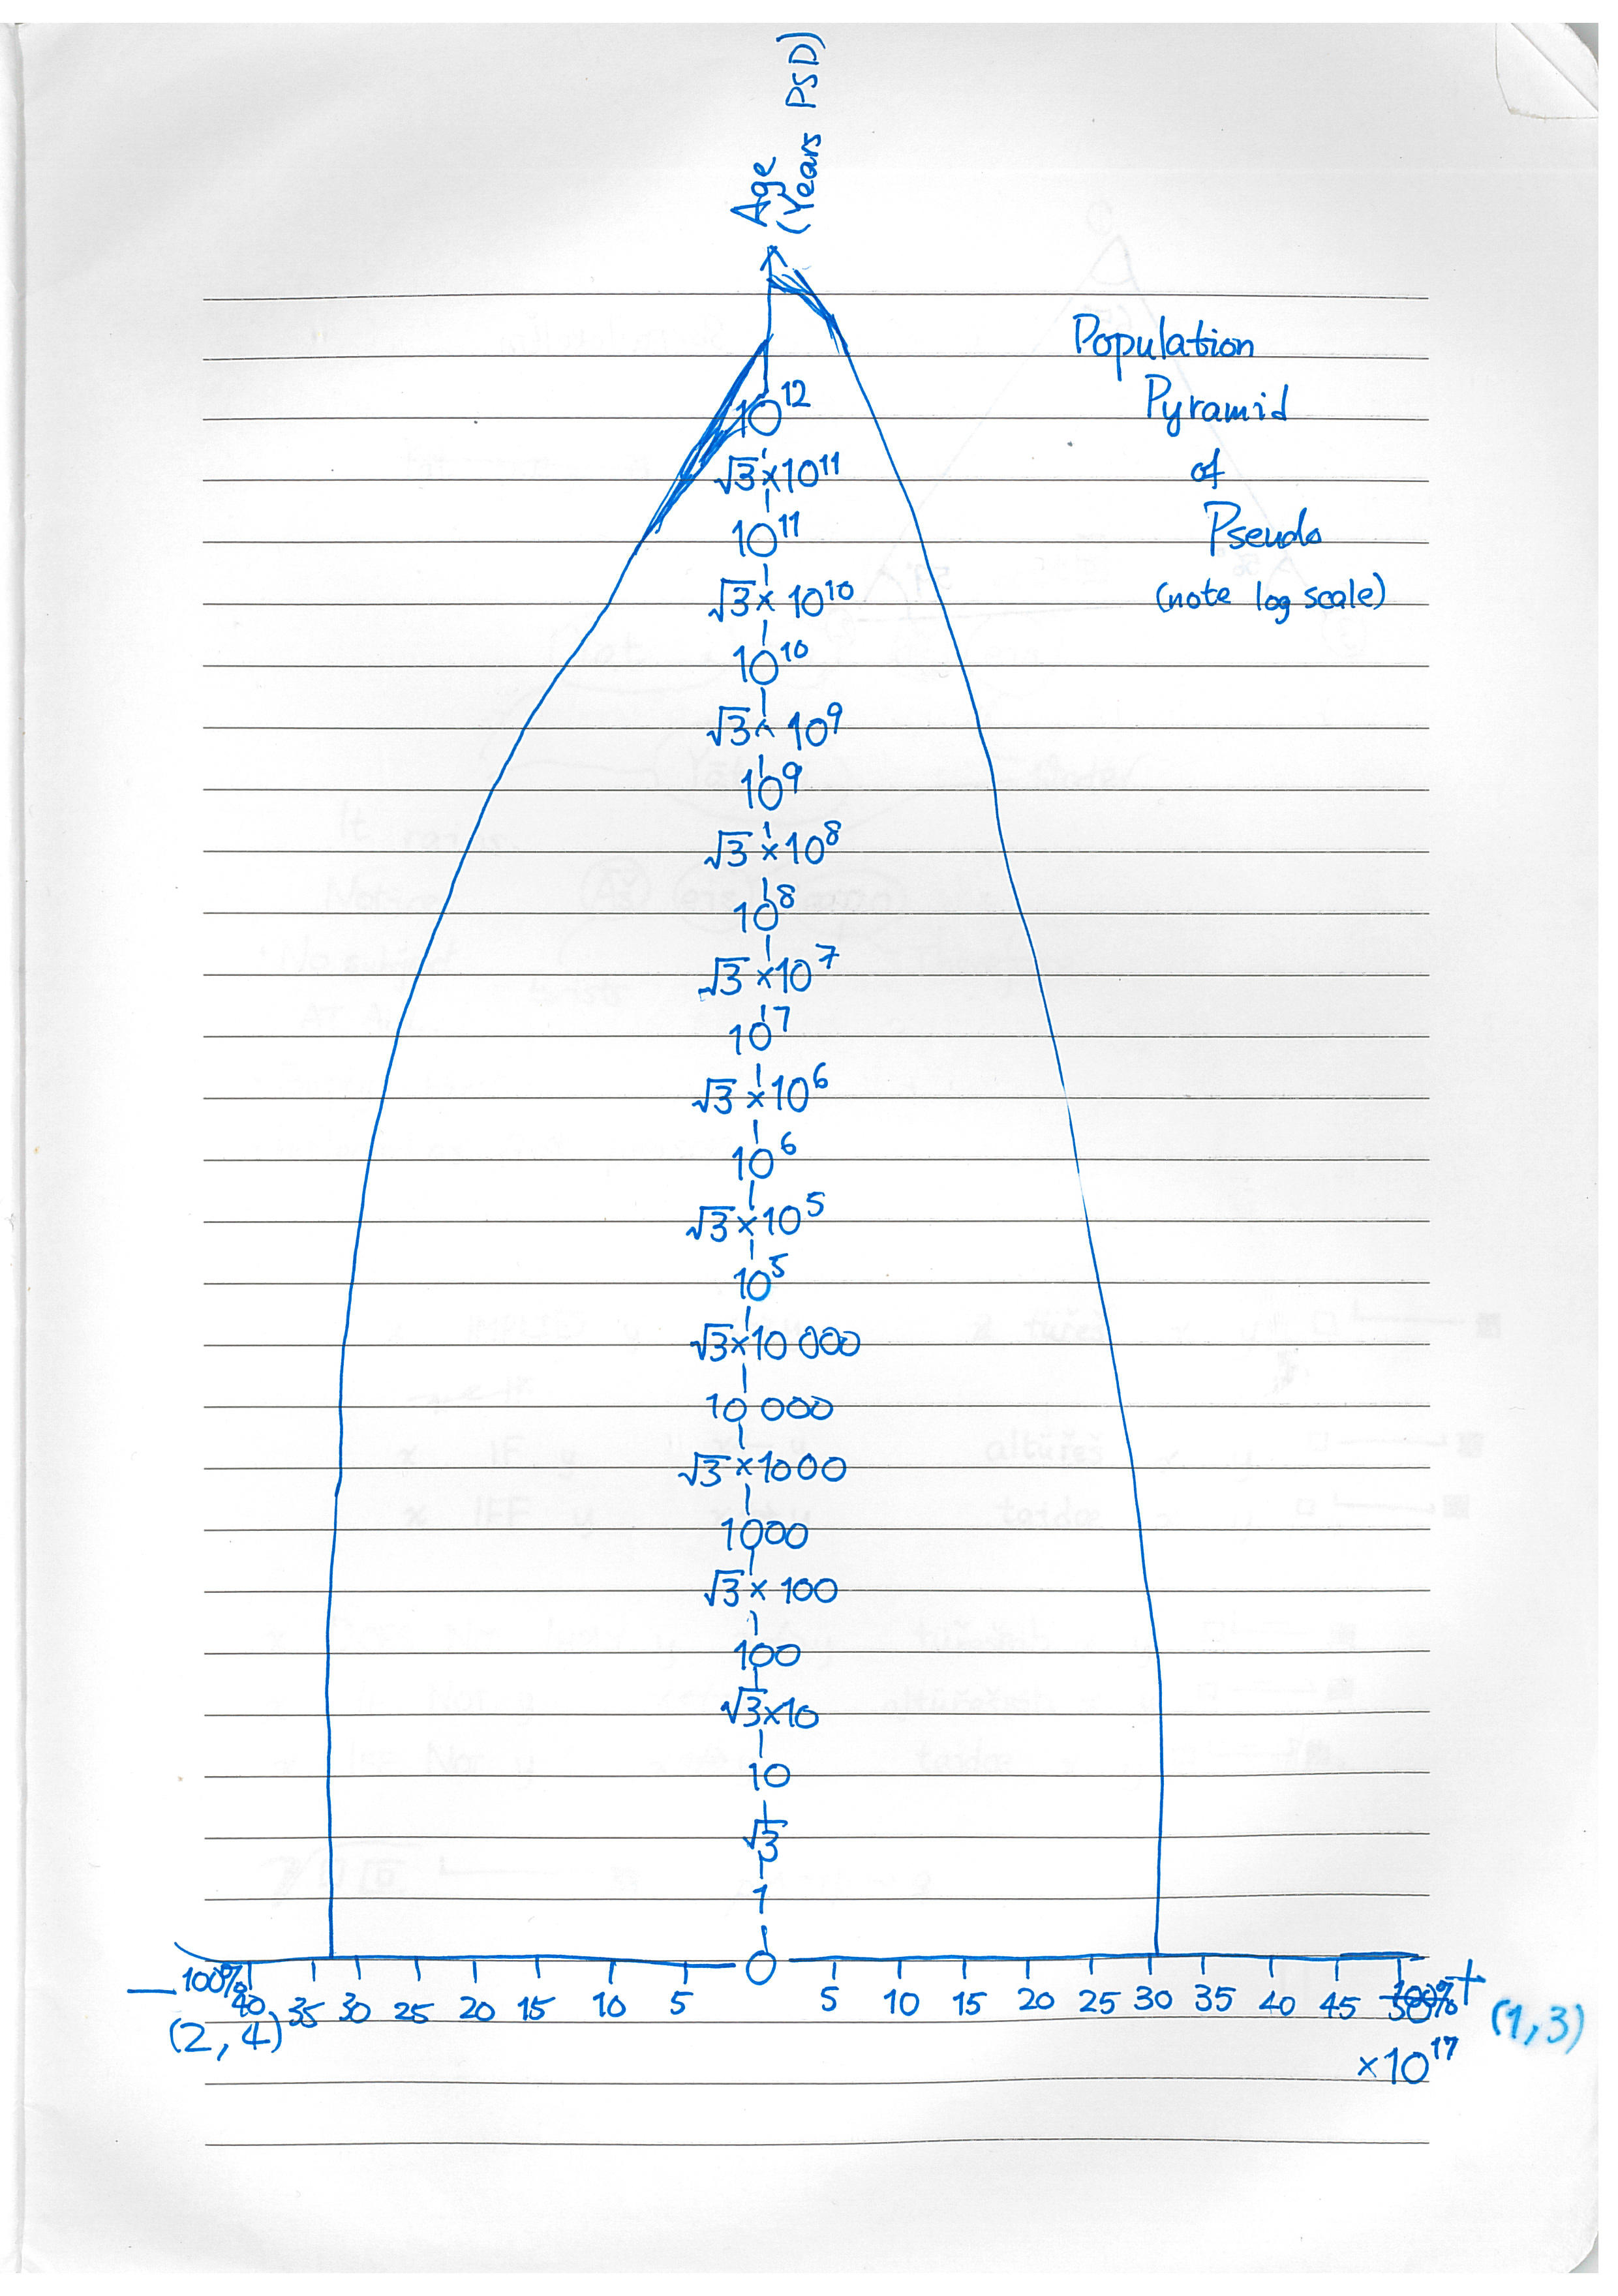 Age
(Years PSD)
Population
Pyramid
of
Pseudo
(note log scale)
10¹²
√3×10¹¹
10¹¹
√3×10¹⁰
10¹⁰
√3×10⁹
10⁹
√3×10⁸
10⁸
√3×10⁷
10⁷
√3×10⁶
10⁶
√3×10⁵
10⁵
√3×10 000
10 000
√3×1000
1000
√3×100
100
√3×10
10
√3
1
0
— 100% 40 35 30 25 20 15 10 5 5 10 15 20 25 30 35 40 45 50 +
(2, 4) (1, 3)
×10¹⁷